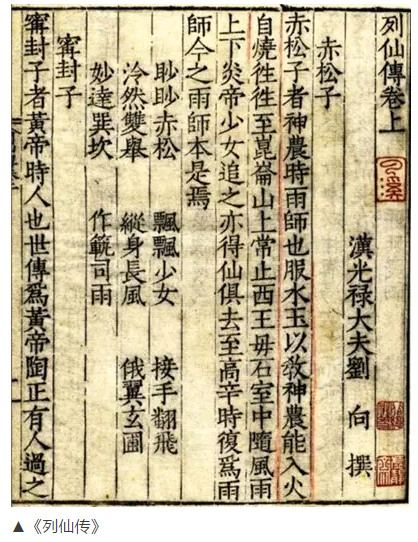 列仙傳卷上
漢光禄大夫劉向撰
赤松子
赤松子者神農時雨師也服水玉以教神農能入火
自燒徃徃至崑崙山上常止西王母石室中隨風雨
上下炎帝少女追之亦得仙俱去至高辛時復爲雨
師今之雨師本是焉
眇眇赤松 飄飄少女 接手翻飛
泠然雙舉 縱身長風 俄翼玄圃
妙達巽坎 作範司雨
甯封子
甯封子者黃帝時人也世傳爲黃帝陶正有人過之
▲《列仙传》